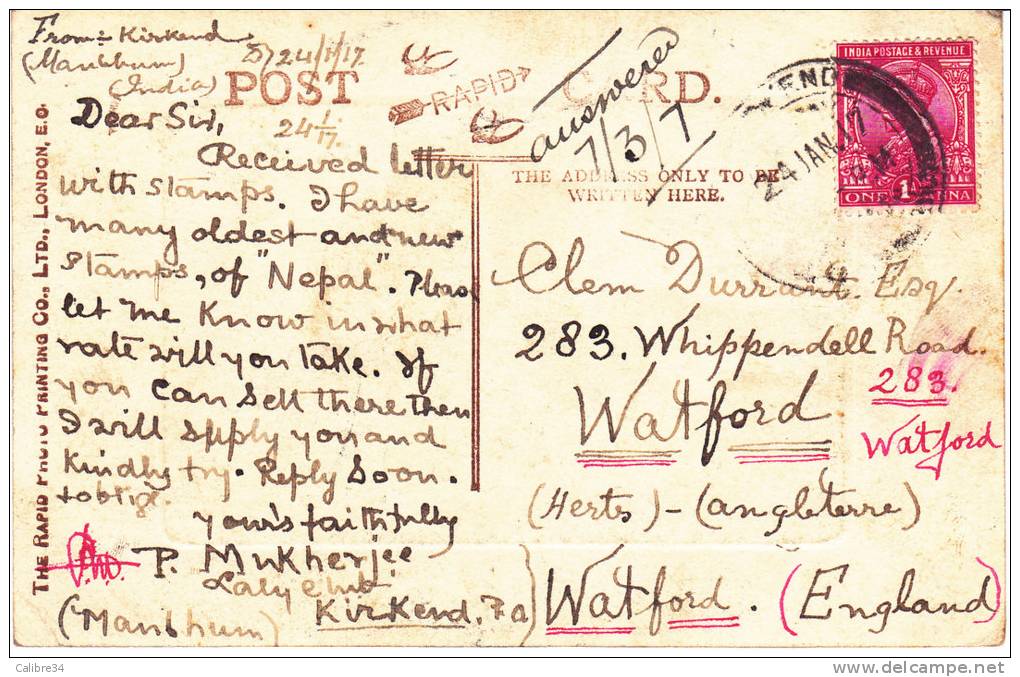 From: Kirkend
(Manbhum)
(India)
D/24/1/17
24 1/17
POST CARD.
RAPID
answered
7/3/7
THE ADDRESS ONLY TO BE
WRITTEN HERE.
INDIA POSTAGE & REVENUE
ONE 1 ANNA
24 JAN 17
Dear Sir,
Received letter
with stamps. I have
many oldest and new
stamps, of "Nepal". Pleas
let me Know in what
rate will you take. If
you can sell there then
I will spply you and
Kindly try. Reply Soon.
to oblige.
your's faithfully
P. Mukherjee
Kirkend, Fa)
(Manbhum)
Clem Durrant. Esq.
283. Whippendell Road.
283.
Watford
Watford
(Herts) - (angleterre)
Watford. (England)
THE RAPID PHOTO PRINTING CO., LTD., LONDON, E.C.
Calibre34
delcampe.net